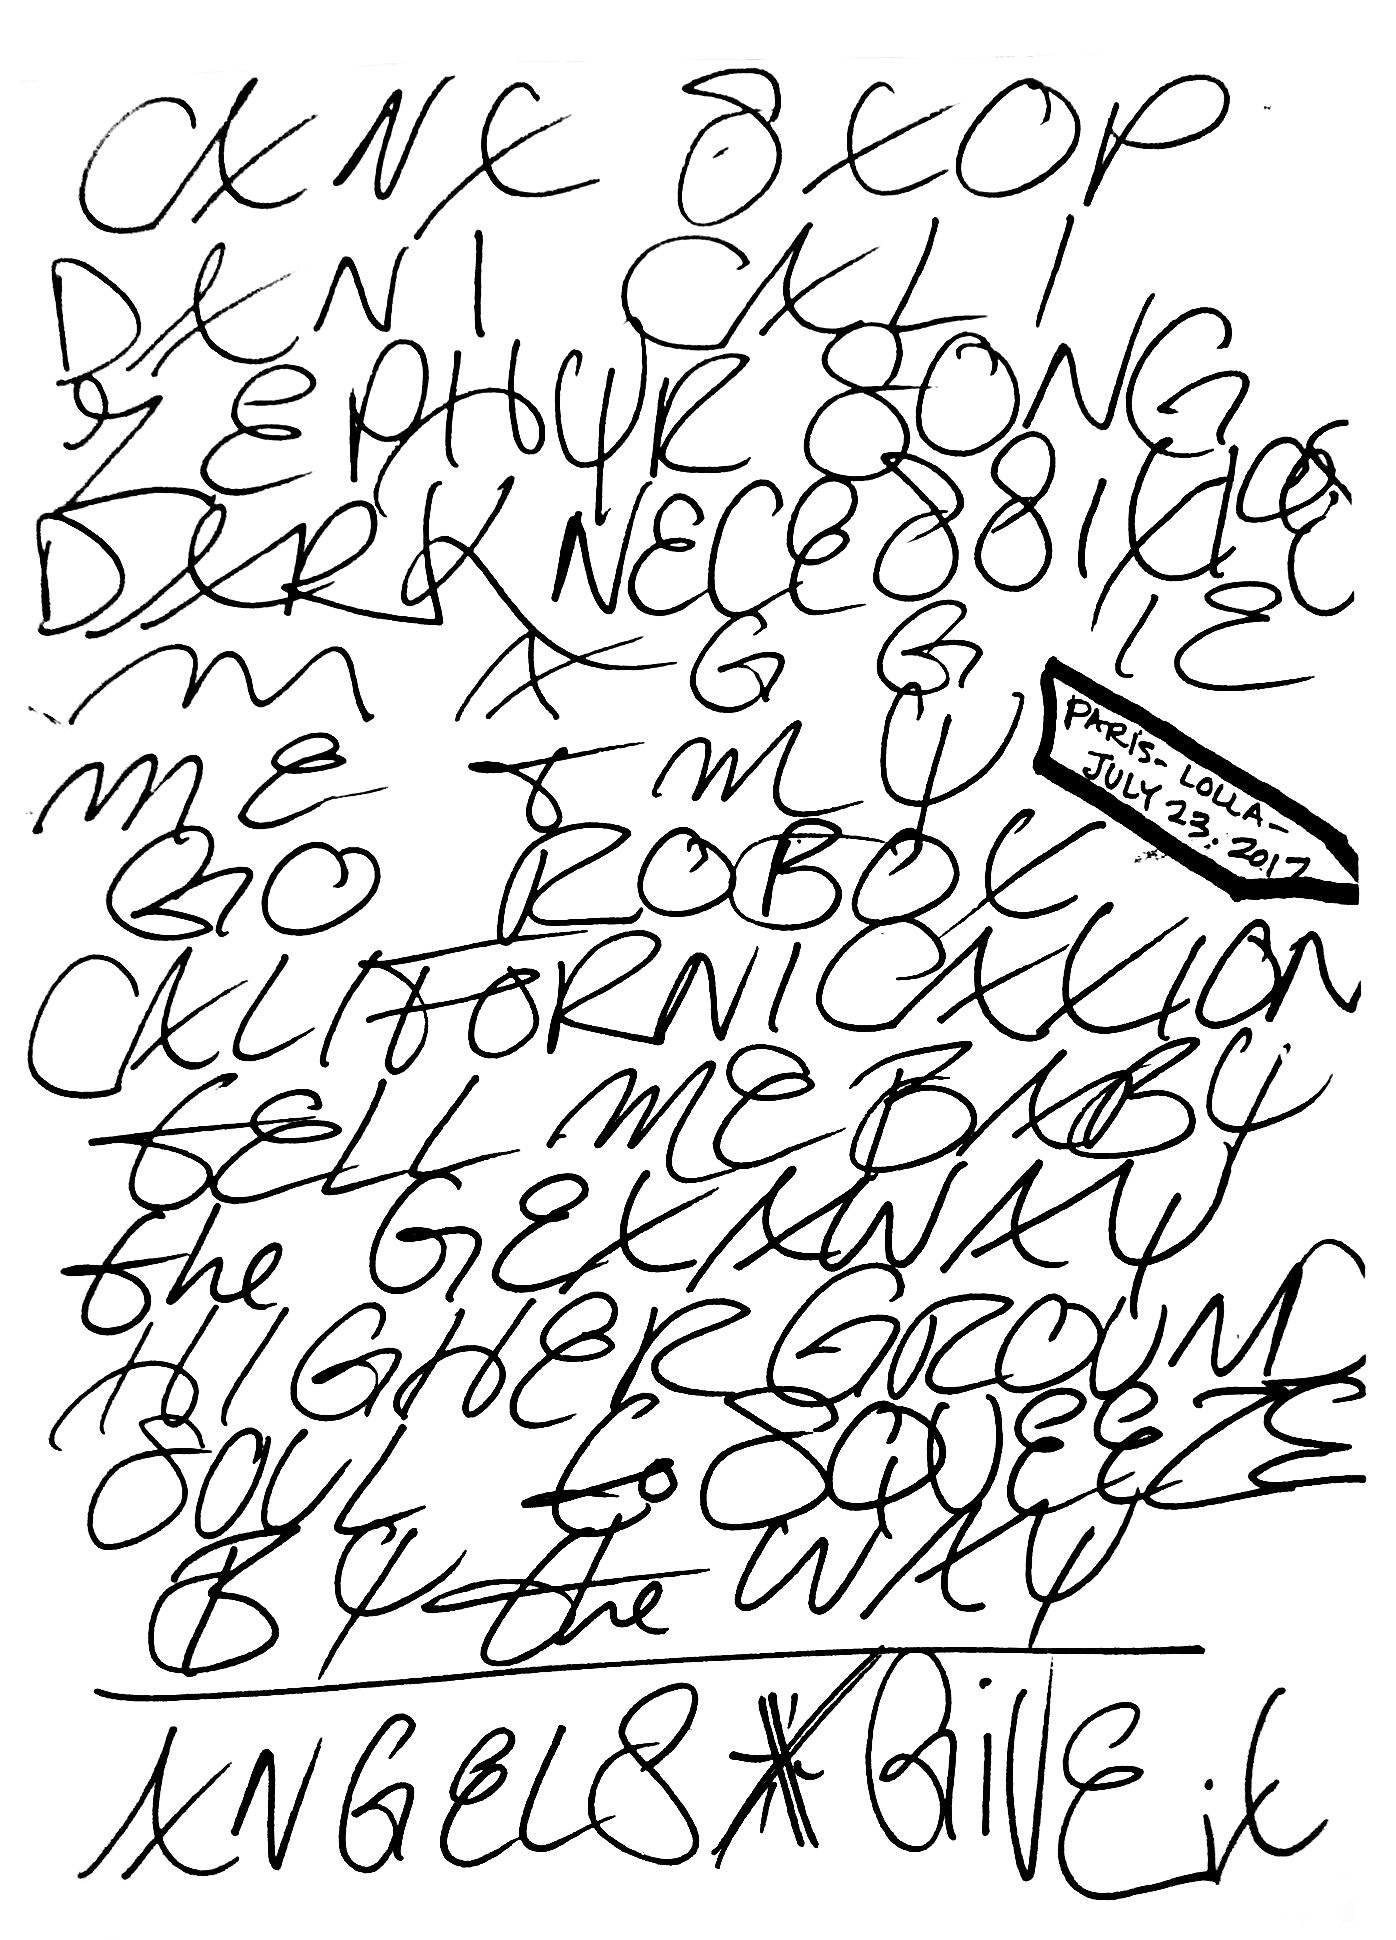 CAN'T STOP
DANI CALI
ZEPHYR SONG
DARK NECESSITIES
MAGGIE
ME & MY
GO ROBOT
CALIFORNICATION
TELL ME BABY
the GETAWAY
HIGHER GROUND
SOUL to SQUEEZE
BY the WAY
ANGELS * GIVE it
PARIS - LOLLA -
JULY 23. 2017